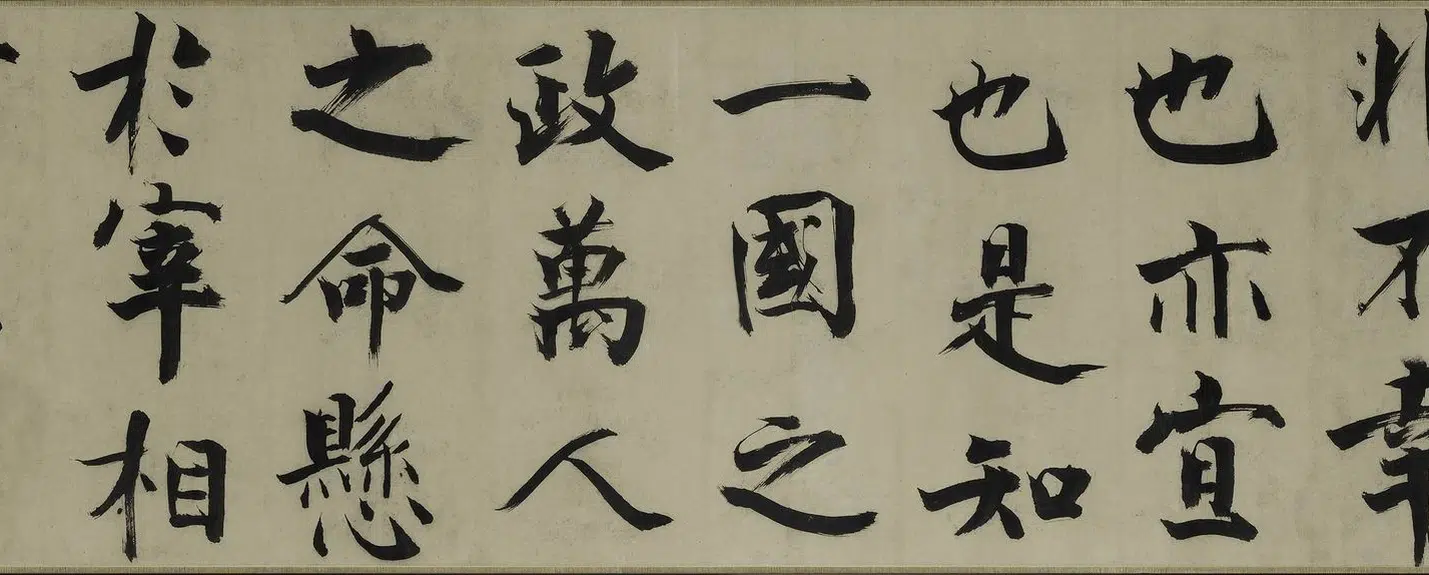 幸
也亦宜
也是知
一國之
政萬人
之命懸
於宰相